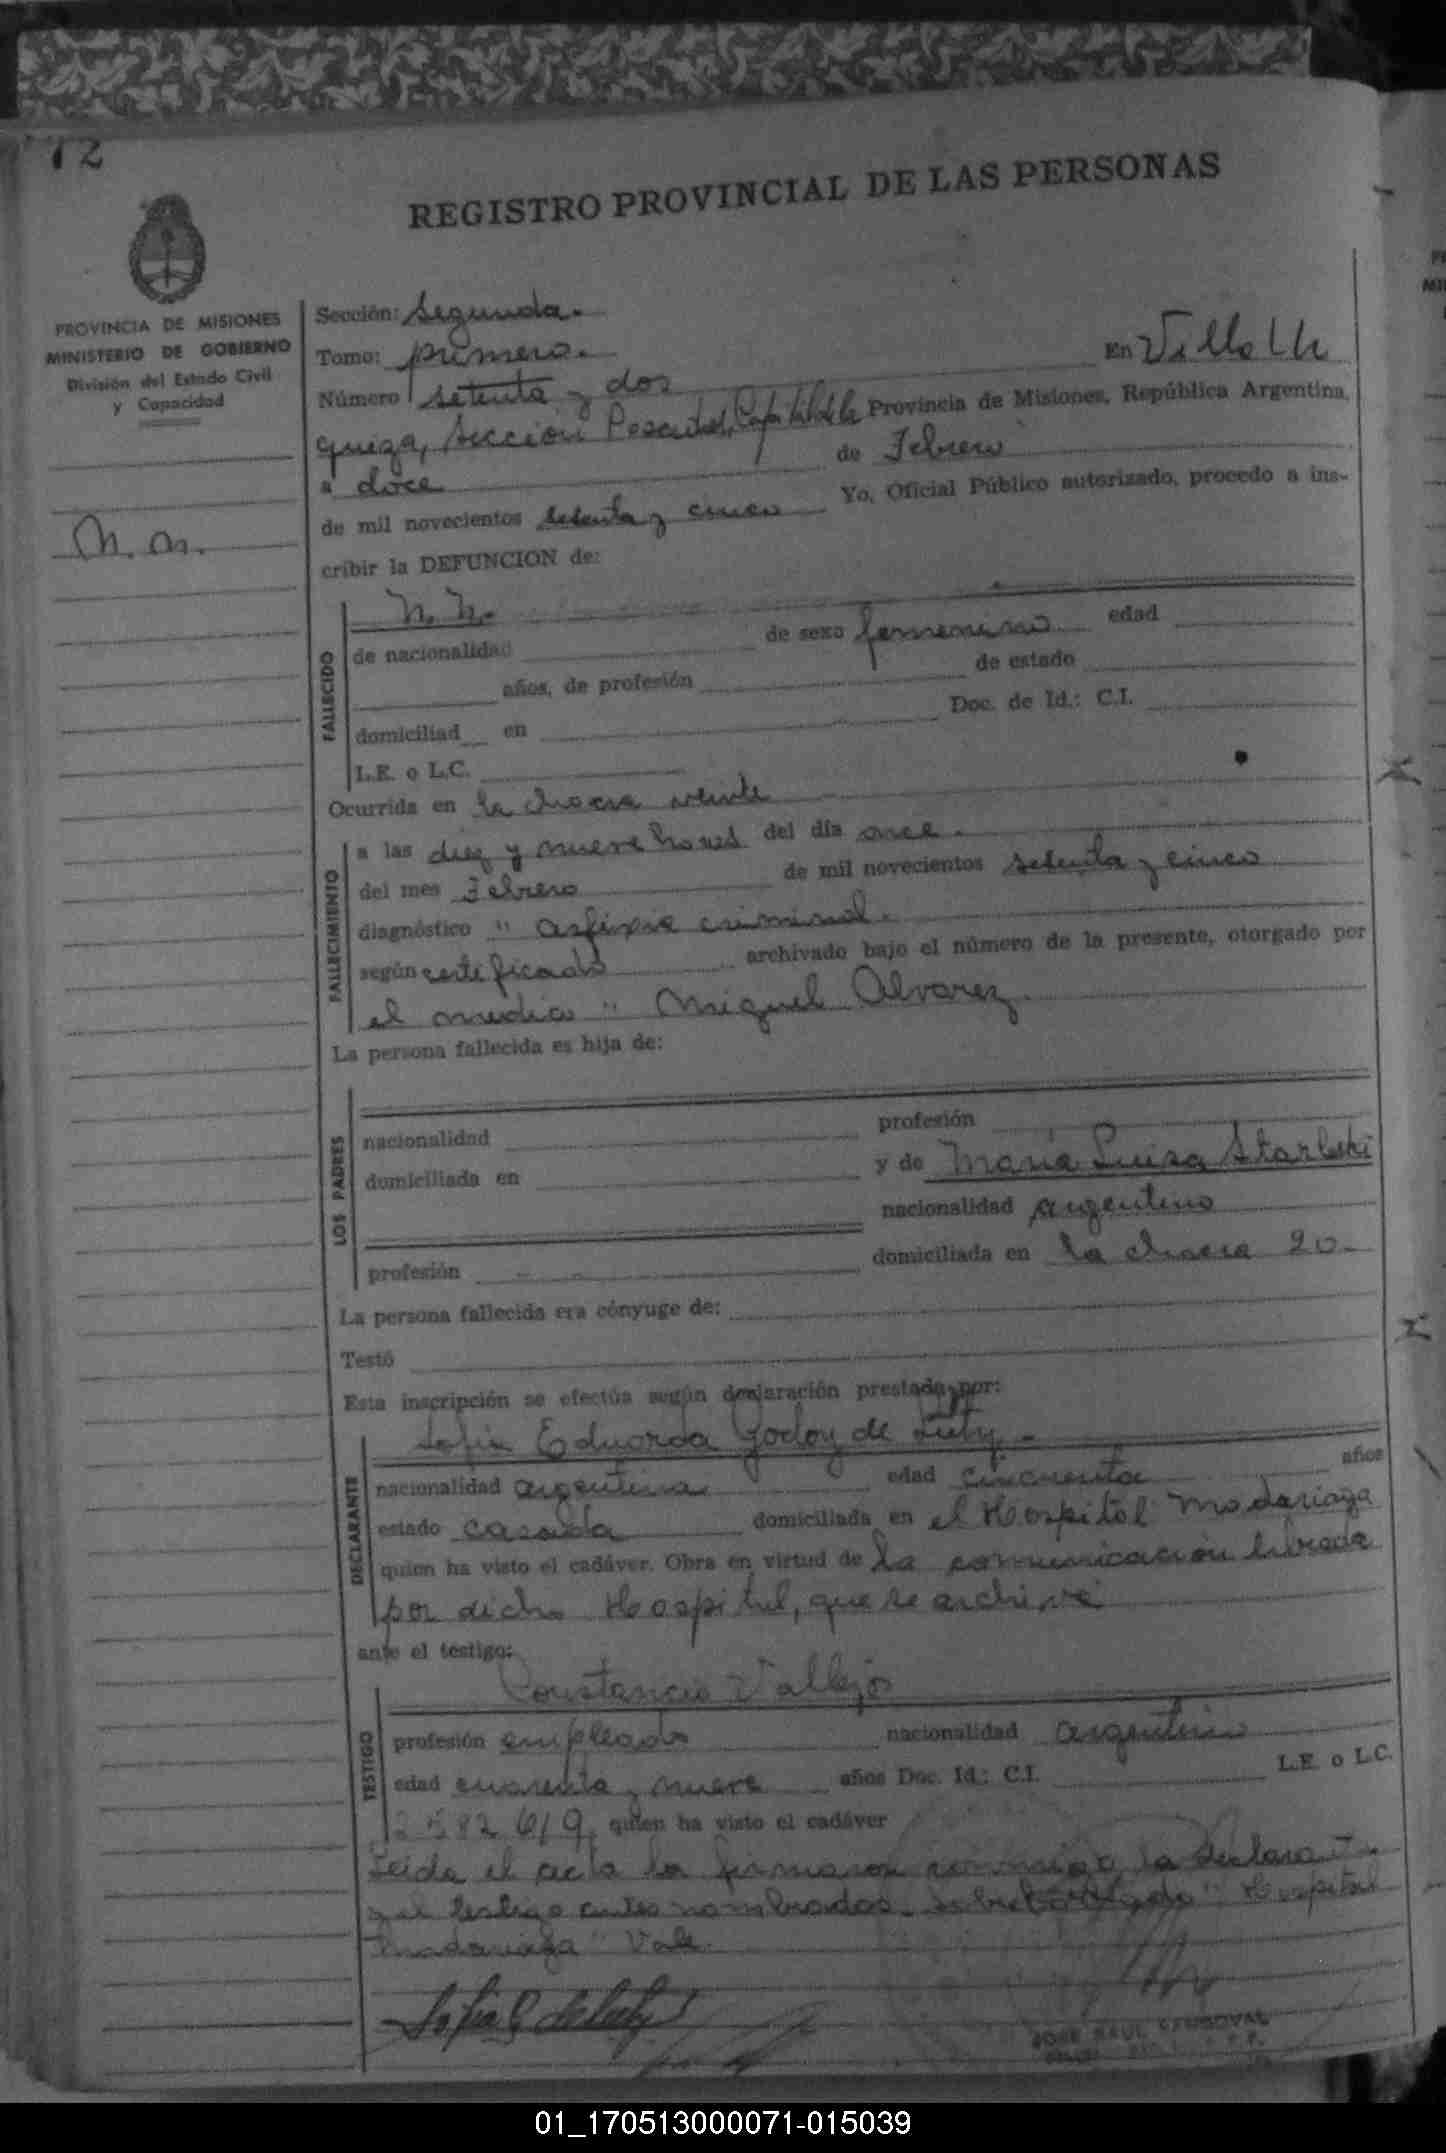 72
REGISTRO PROVINCIAL DE LAS PERSONAS
PROVINCIA DE MISIONES
MINISTERIO DE GOBIERNO
División del Estado Civil
y Capacidad
N. N.
Sección: Segunda.
Tomo: primero.
Número setenta y dos En Villa Ur
quiza, Sección Posadas, Capital de la Provincia de Misiones, República Argentina,
a doce de Febrero
de mil novecientos setenta y cinco Yo, Oficial Público autorizado, procedo a ins-
cribir la DEFUNCION de:
FALLECIDO
N. N.
de nacionalidad de sexo femenino edad
años, de profesión de estado
domiciliad en Doc. de Id.: C.I.
L.E. o L.C.
Ocurrida en la chacra veinte
FALLECIMIENTO
a las diez y nueve horas del día once.
del mes Febrero de mil novecientos setenta y cinco
diagnóstico " asfixia criminal.
según certificado archivado bajo el número de la presente, otorgado por
el medico " Miguel Alvarez
La persona fallecida es hija de:
LOS PADRES
nacionalidad profesión
domiciliada en y de Maria Luisa
nacionalidad argentino
profesión domiciliada en la chacra 20-
La persona fallecida era cónyuge de:
Testó
Esta inscripción se efectúa según declaración prestada por:
DECLARANTE
Sofia Eduarda Godoy de
nacionalidad argentina edad cincuenta años
estado casada domiciliada en el Hospital Madariaga
quien ha visto el cadáver. Obra en virtud de la comunicación librada
por dicho Hospital, que se archiva
ante el testigo:
TESTIGO
Constancio Vallejos
profesión empleado nacionalidad argentino
edad cuarenta y nueve años Doc. Id.: C.I. L.E. o L.C.
2582619, quien ha visto el cadáver
Leida el acta la firmaron conmigo la declarante
y el testigo antes nombrados. "Hospital
Madariaga" Vale.
JOSE RAUL SANDOVAL
01_170513000071-015039